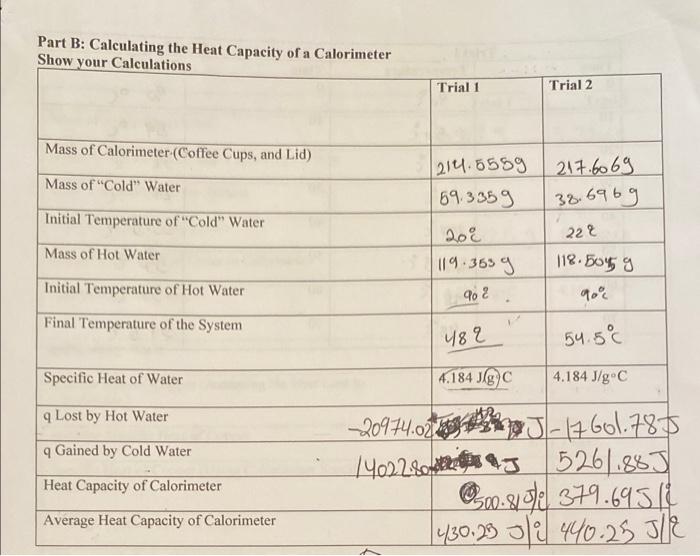 Part B: Calculating the Heat Capacity of a Calorimeter
Show your Calculations
Trial 1 Trial 2
Mass of Calorimeter (Coffee Cups, and Lid) 214.558g 217.606g
Mass of "Cold" Water 69.335g 38.696g
Initial Temperature of "Cold" Water 20°C 22°C
Mass of Hot Water 119.353g 118.505g
Initial Temperature of Hot Water 90°C 90°C
Final Temperature of the System 48°C 54.5°C
Specific Heat of Water 4.184 J/g°C 4.184 J/g°C
q Lost by Hot Water -20974.02 J -17601.78J
q Gained by Cold Water 14022.80 J 5261.88J
Heat Capacity of Calorimeter 500.81J/°C 379.69J/°C
Average Heat Capacity of Calorimeter 430.25 J/°C 440.25 J/°C